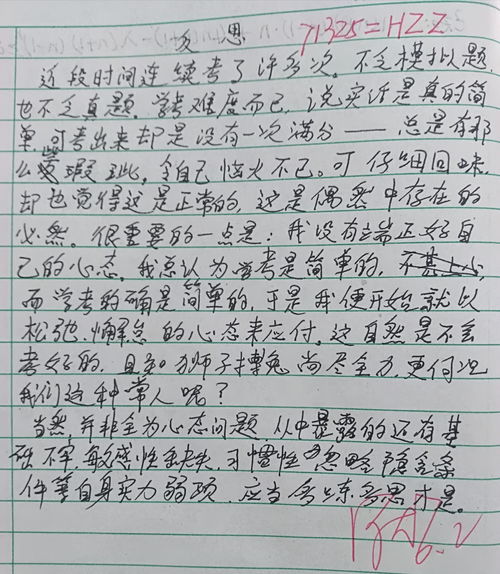 反思
71325=HZZ
近段时间连续考了许多次。不乏模拟题
也不乏真题。学考难度而已，说实话是真的简
单，可考出来却是没有一次满分——总是有那
么些瑕玼，令自己恼火不已。可仔细回味，
却也觉得这是正常的，这是偶然中存在的
必然。很重要的一点是：我没有端正好自
己的心态。我总认为学考是简单的，
而学考的确是简单的，于是我便开始就以
松弛、懈怠的心态来应付。这自然是不会
考好的，且知狮子搏兔尚尽全力，更何况
我们这种常人呢？
当然，并非全为心态问题，从中暴露的还有基
础不牢，敏感性缺失，习惯性忽略隐含条
件等自身实力弱项，应当多练多思才是。
6.2